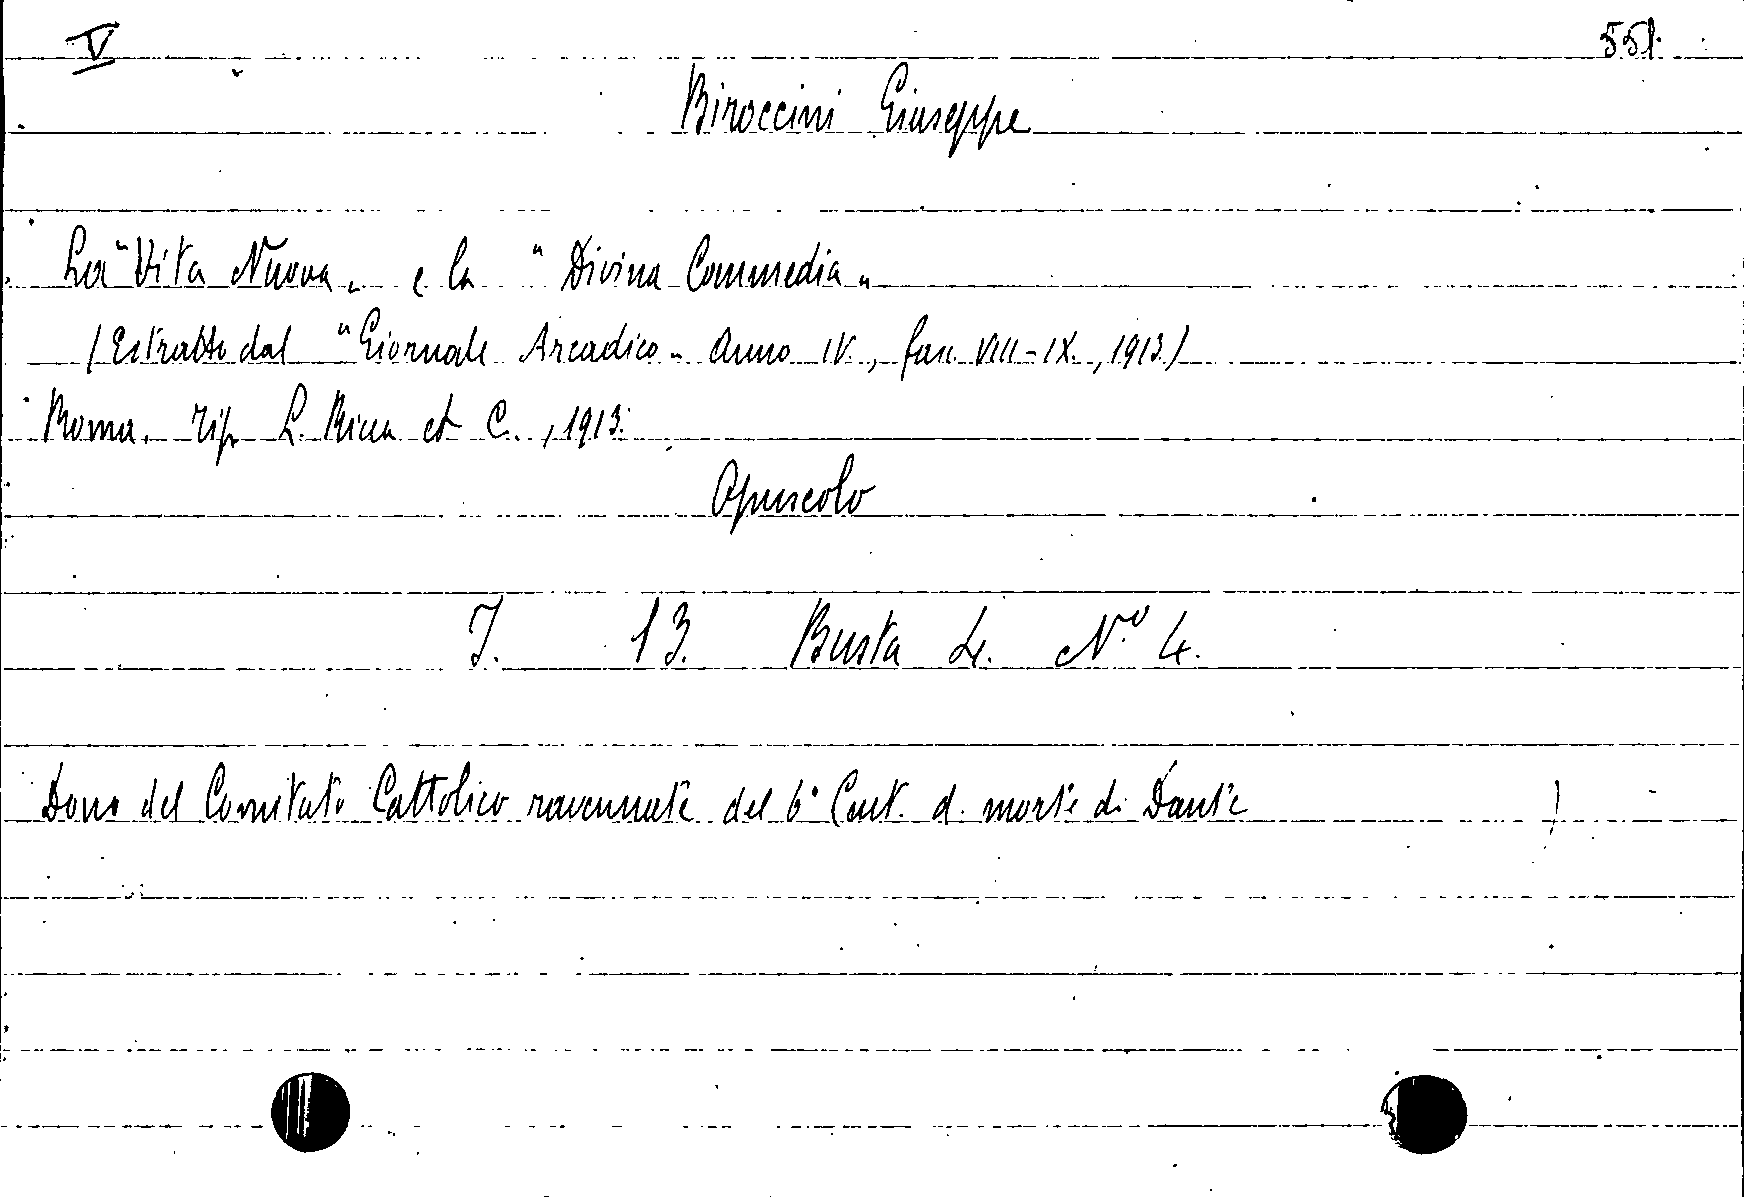 V 551.
Biroccini Giuseppe
La "Vita Nuova" e la "Divina Commedia"
(Estratto dal "Giornale Arcadico" Anno IV., fasc. VIII-IX., 1913)
Roma. Tip. L. et C., 1913.
Opuscolo
J. 13. Busta 4. N.º 4.
Dono del Comitato Cattolico ravennate del 6° Cent. d. morte di Dante